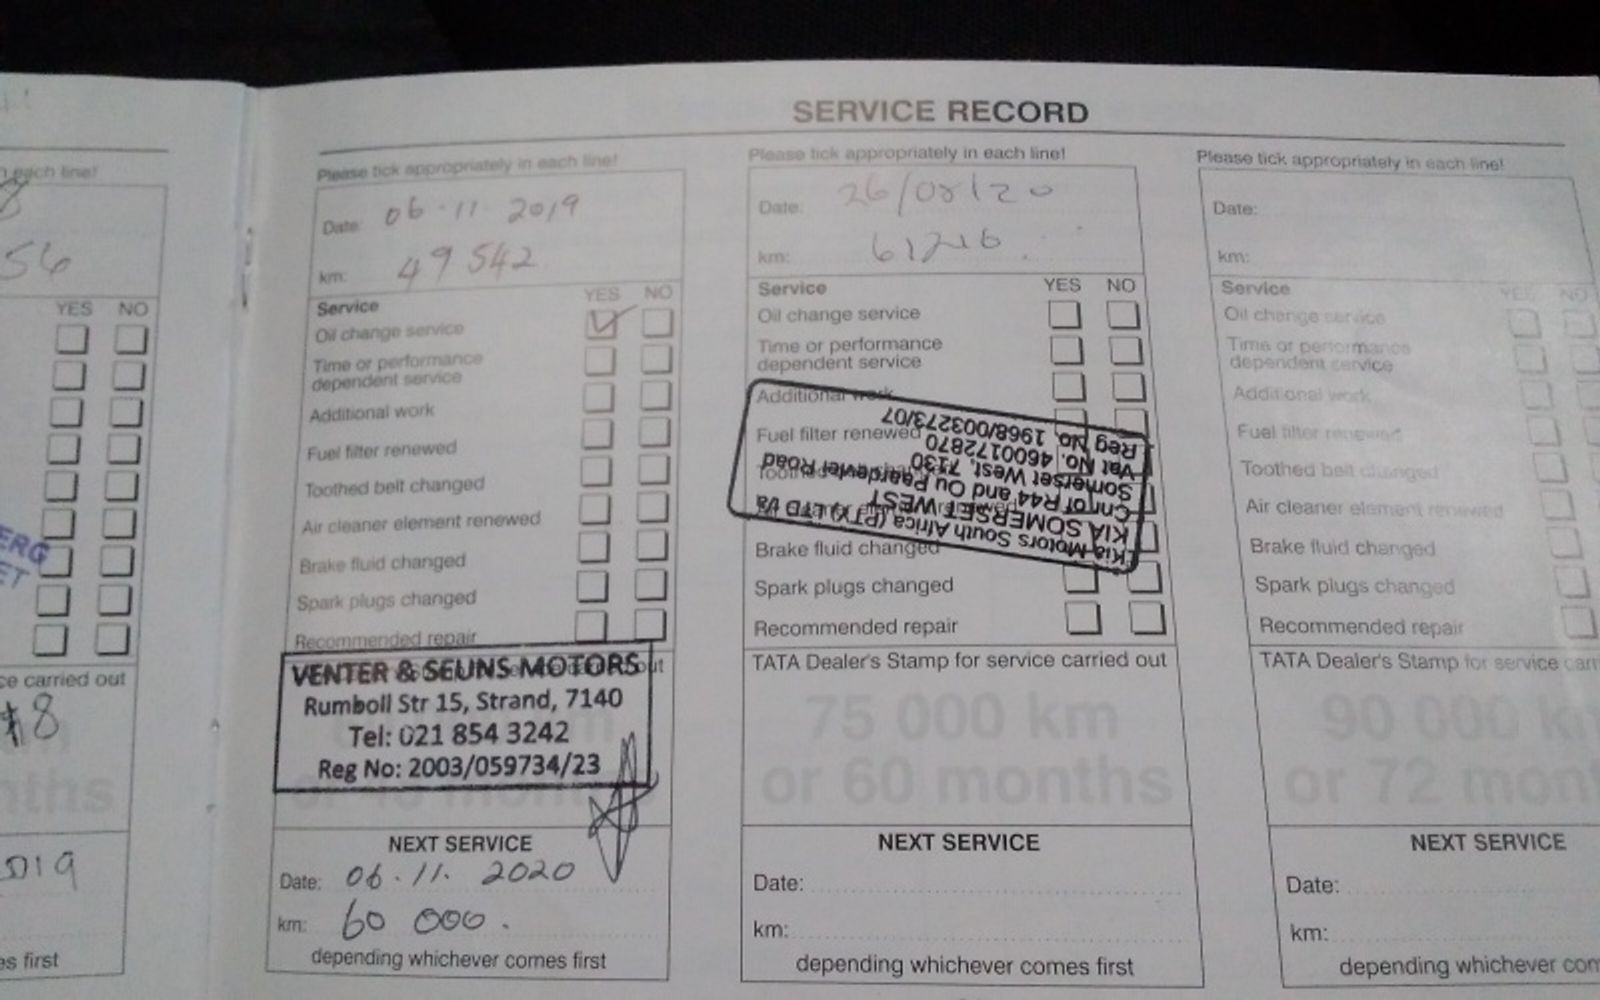 SERVICE RECORD
n each line!
8
56
YES NO
ERG
ET
ce carried out
18
nths
2019
es first
Please tick appropriately in each line!
Date: 06·11·2019
km: 49 542
Service YES NO
Oil change service
Time or performance
dependent service
Additional work
Fuel filter renewed
Toothed belt changed
Air cleaner element renewed
Brake fluid changed
Spark plugs changed
Recommended repair
out
VENTER & SEUNS MOTORS
Rumboll Str 15, Strand, 7140
Tel: 021 854 3242
Reg No: 2003/059734/23
NEXT SERVICE
Date: 06·11·2020
km: 60 000.
depending whichever comes first
Please tick appropriately in each line!
Date: 26/08/20
km: 61216
Service YES NO
Oil change service
Time or performance
dependent service
Additional work
Fuel filter renewed
Kia Motors South Africa (PTY) LTD t/a
KIA SOMERSET WEST
Cnr of R44 and Ou Paardevlei Road
Somerset West, 7130
Vat No. 4600172870
Reg No. 1968/003273/07
Brake fluid changed
Spark plugs changed
Recommended repair
TATA Dealer's Stamp for service carried out
75 000 km
or 60 months
NEXT SERVICE
Date:
km:
depending whichever comes first
Please tick appropriately in each line!
Date:
km:
Service YES NO
Oil change service
Time or performance
dependent service
Additional work
Fuel filter renewed
Toothed belt changed
Air cleaner element renewed
Brake fluid changed
Spark plugs changed
Recommended repair
TATA Dealer's Stamp for service carr
90 000 k
or 72 mon
NEXT SERVICE
Date:
km:
depending whichever com